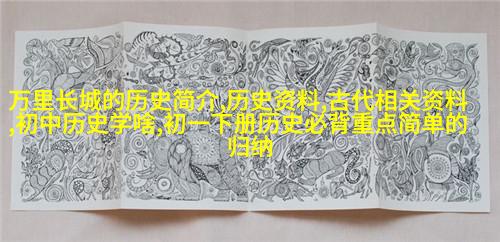 万里长城的历史简介,历史资料,古代相关资料
,初中历史学啥,初一下册历史必背重点简单的
归纳